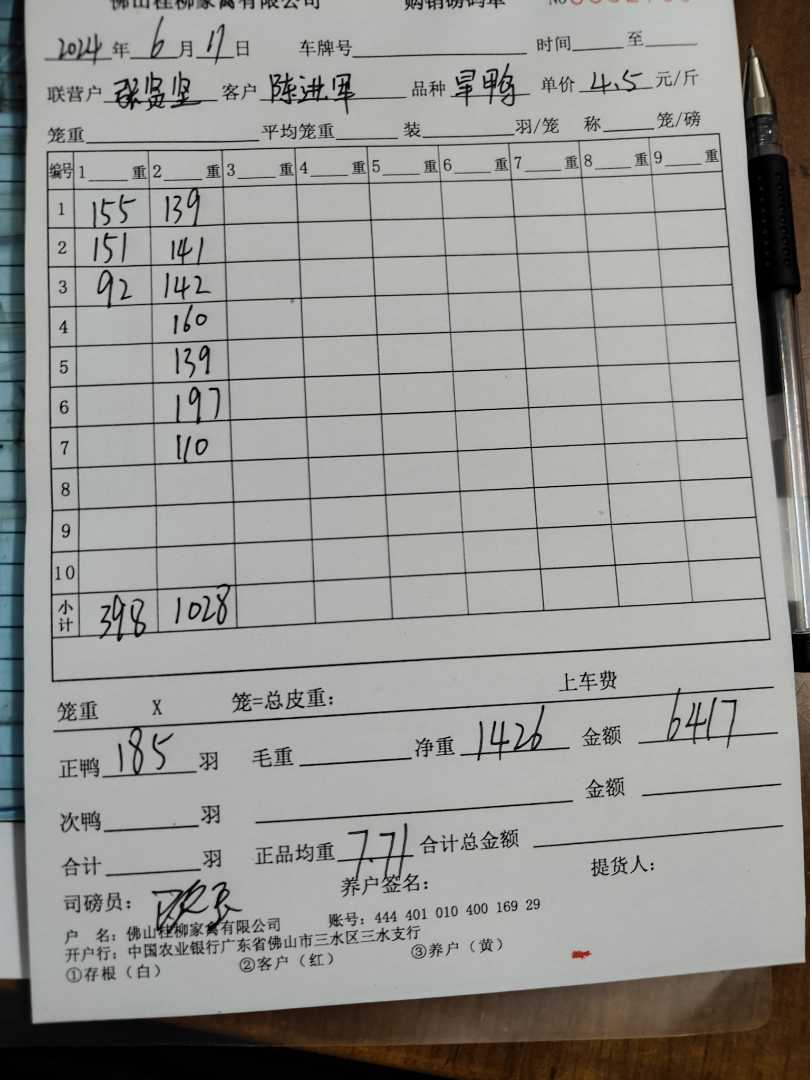 佛山桂柳家禽有限公司 购销磅码单 No
2024年6月17日 车牌号 时间 至
联营户 张贤坚 客户 陈进军 品种 旱鸭 单价 4.5 元/斤
笼重 平均笼重 装 羽/笼 称 笼/磅
编号 1 重 2 重 3 重 4 重 5 重 6 重 7 重 8 重 9 重
1 155 139
2 151 141
3 92 142
4 160
5 139
6 197
7 110
8
9
10
小计 398 1028
笼重 X 笼=总皮重: 上车费
正鸭 185 羽 毛重 净重 1426 金额 6417
次鸭 羽 金额
合计 羽 正品均重 7.71 合计总金额
司磅员: 养户签名: 提货人:
户 名: 佛山桂柳家禽有限公司 账号: 444 401 010 400 169 29
开户行: 中国农业银行广东省佛山市三水区三水支行
①存根（白） ②客户（红） ③养户（黄）